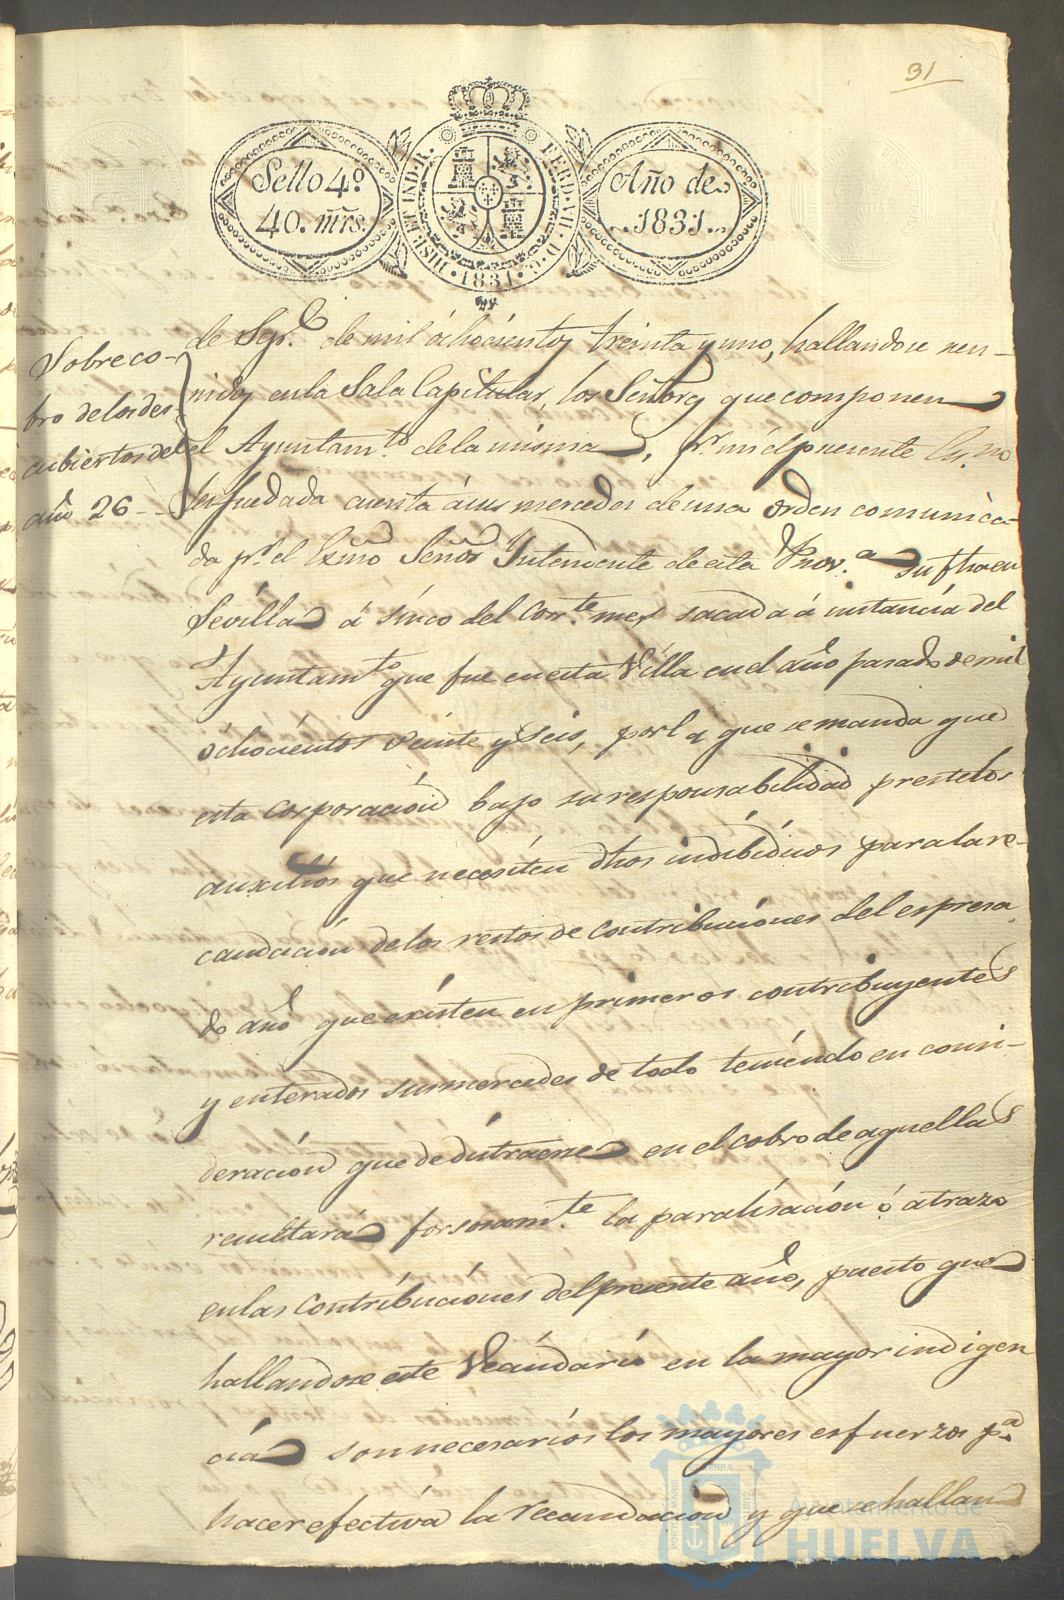 31
Sello 4º
40. mrs.
HISP. ET IND. R. FERD. VII. D. G. 1831.
Año de
1831.
Sobre co-
bro de los des-
cubiertos del
año 26 -
de Sepe. de mil ochocientos treinta y uno, hallandose reu-
nidos en la Sala Capitular, los Señores que componen
el Ayuntamto. de la misma, pr. mi el presente Essno
les fue dada cuenta á sus mercedes de una orden comunica-
da pr. el Exmo Señor Yntendente de esta Prova. su fha en
Sevilla á sinco del corrte. mes sacada á instancia del
Ayuntamto. que fue en esta Villa en el año pasado de mil
ochocientos veinte y seis, por la que se manda que
esta corporación bajo su responsabilidad preste los
auxilios que necesiten dhos indibiduos para la re-
caudación de los restos de contribuciones del espresa-
do año que existen en primeros contribuyentes
y enterados sus mercedes de todo teniendo en consi-
deración que de distraerse en el cobro de aquellas
resultará forsosamte. la paralisación ó atrazo
en las contribuciones del presente año, puesto que
hallandose este Vecindario en la mayor indigen
cia son necesarios los mayores esfuerzos pa.
hacer efectiva la recaudación y que se hallan
Ayuntamiento de
HUELVA